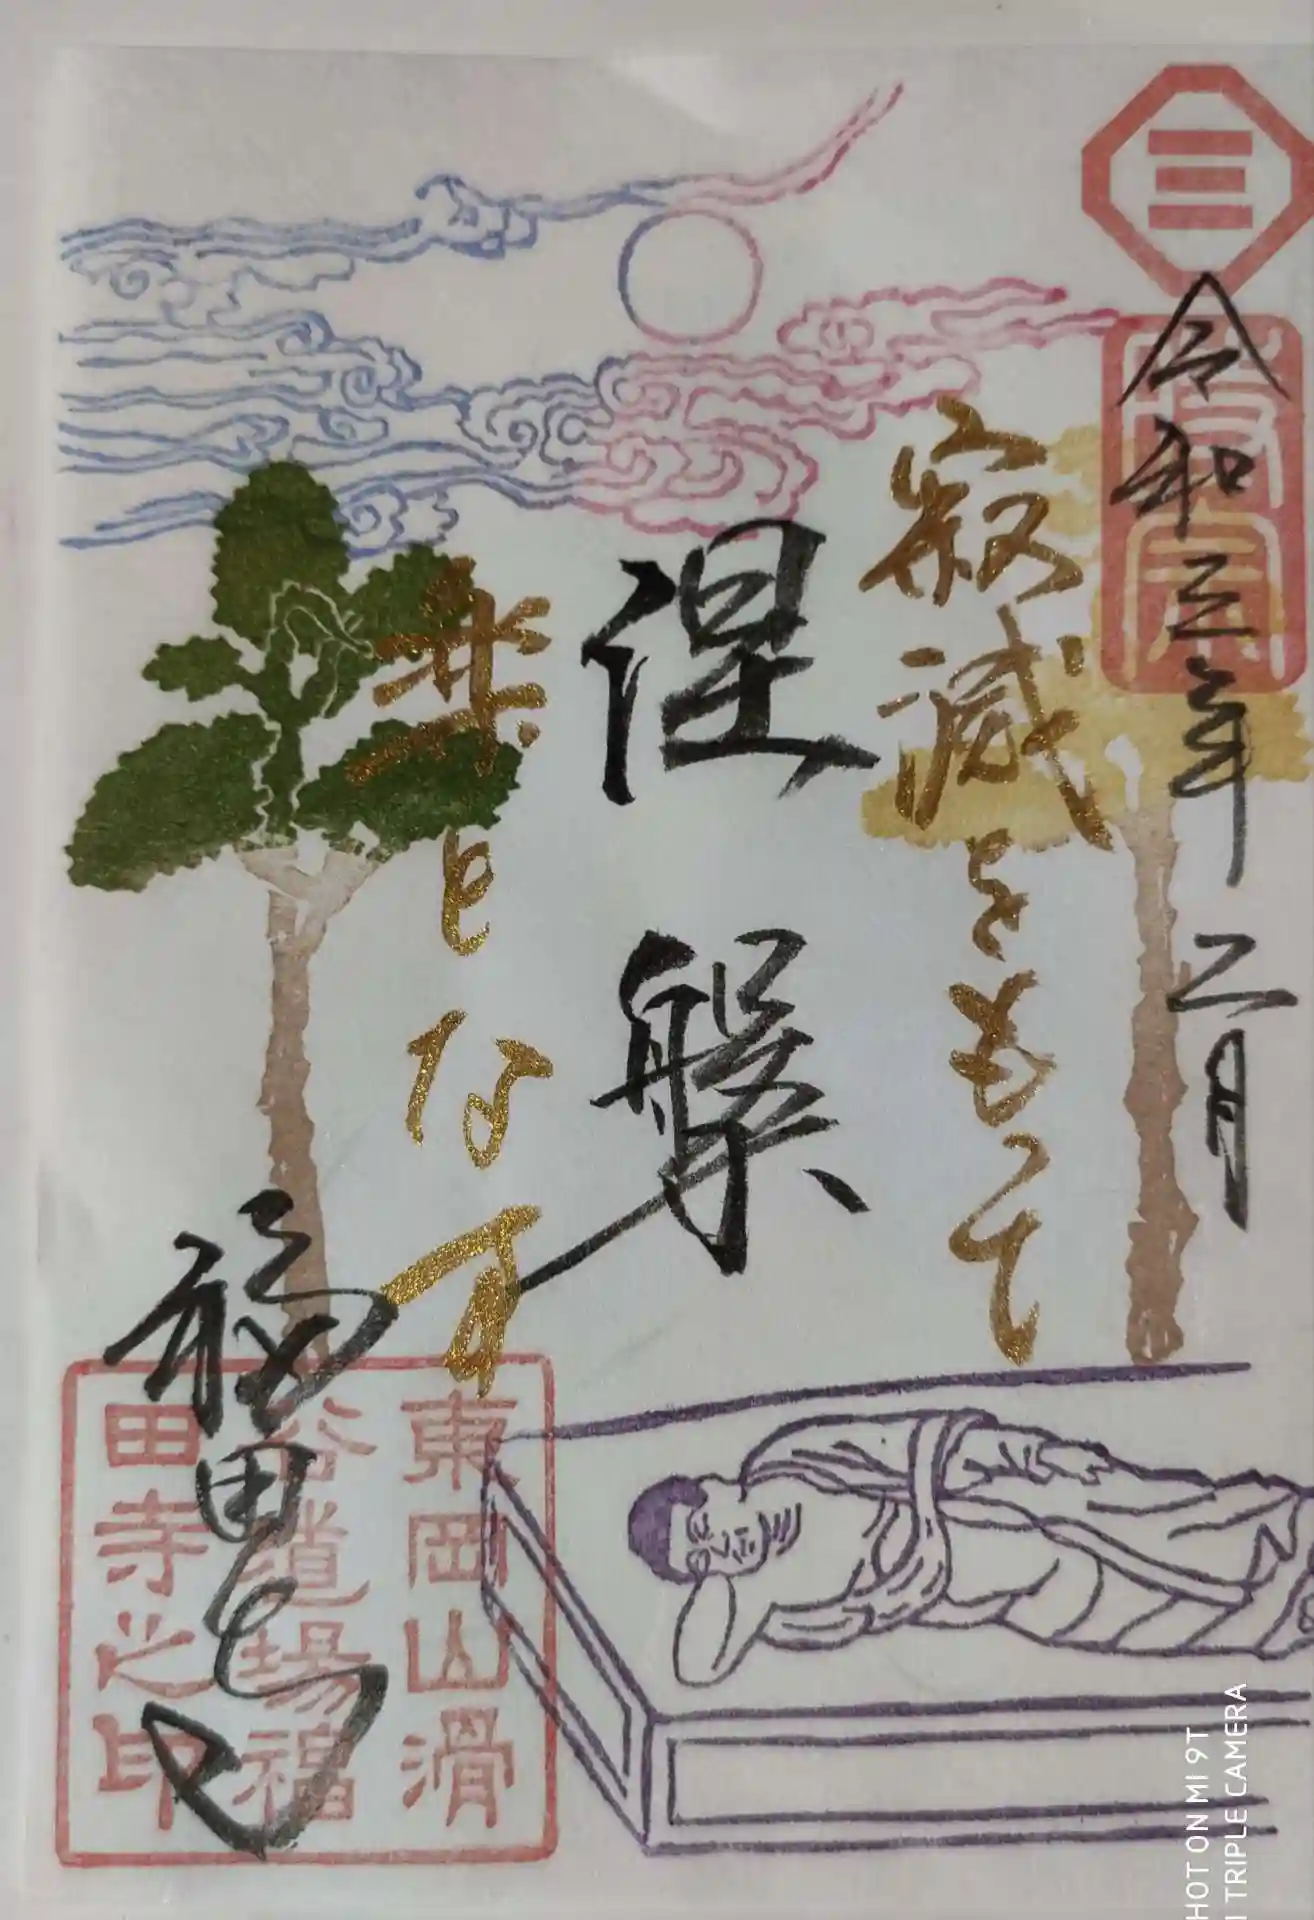 令和三年二月
時宗
寂滅をもて
涅槃
楽となす
福田寺
東岡山滑
谷道場福
田寺之印
SHOT ON MI 9T
AI TRIPLE CAMERA